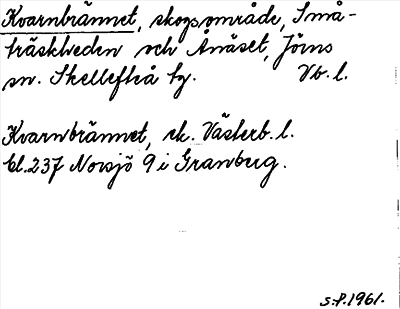 Kvarnbrännet, skogsområde, Små-
träskheden och Ånäset, Jörns
sn. Skellefteå tg. Vb. l.
Kvarnbrännet, ek. Västerb. l.
bl. 237 Norsjö 9 i Granberg.
S.P. 1961.